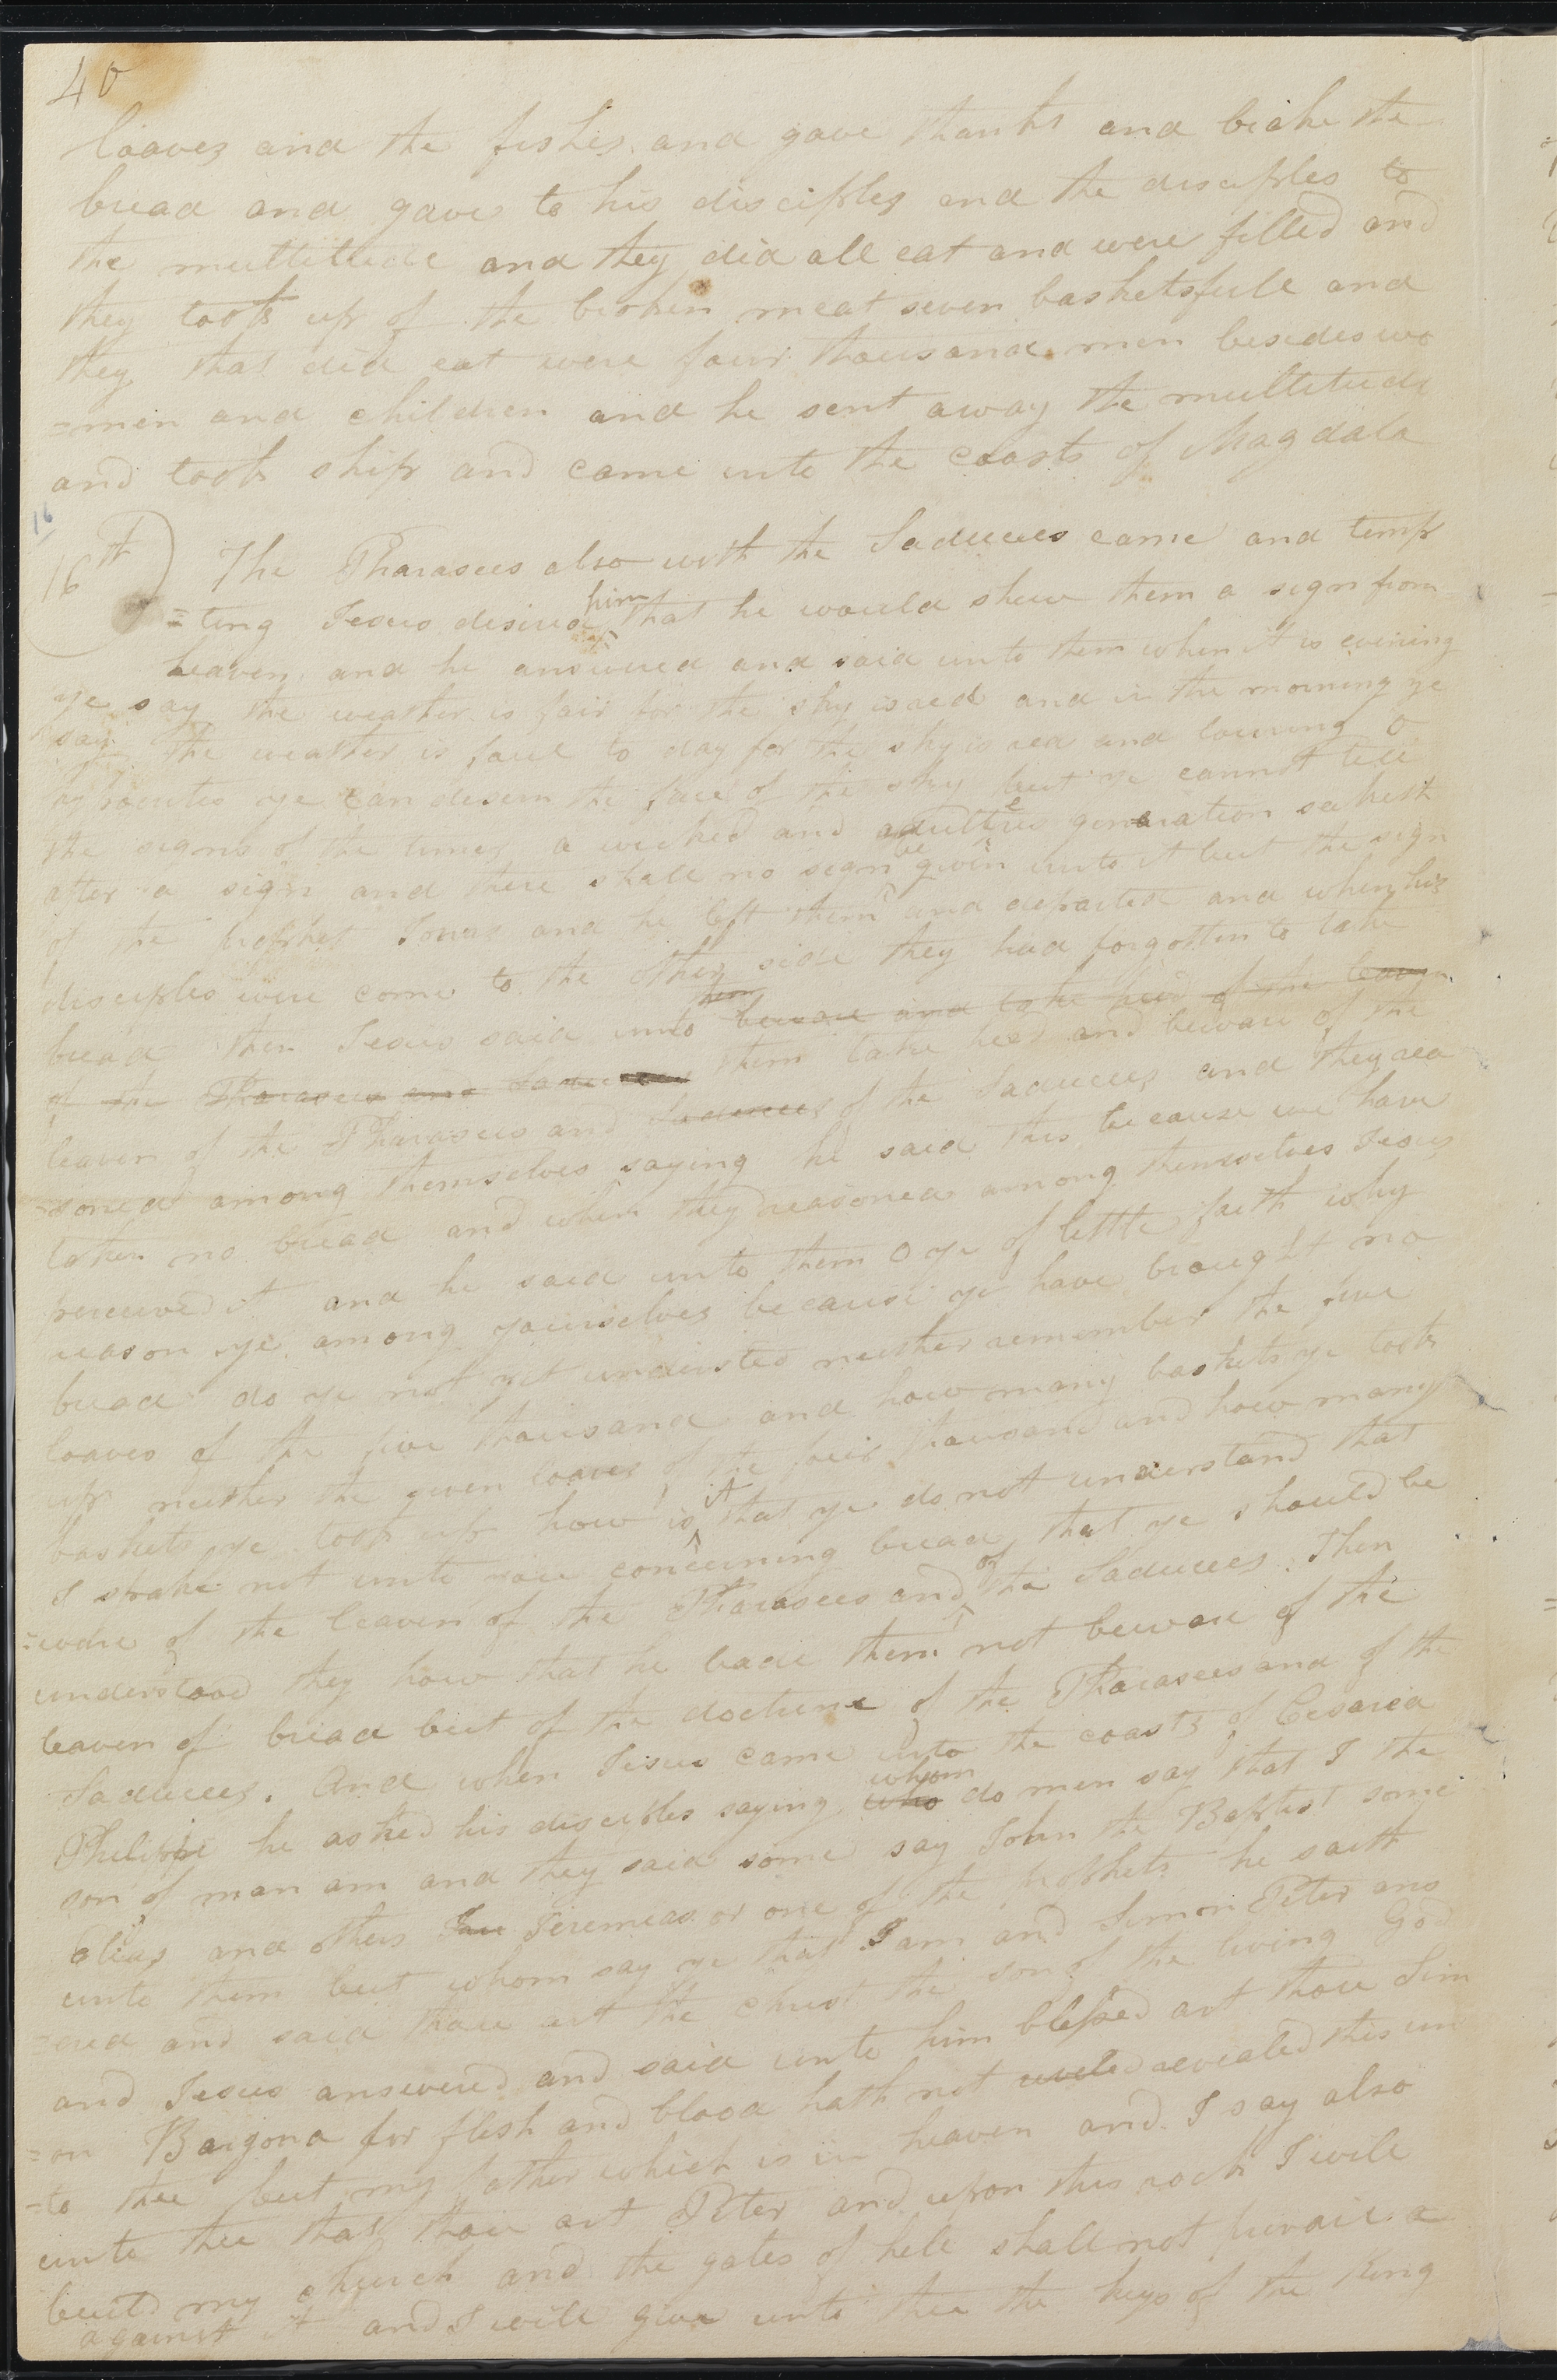 40
loaves and the fishes and gave thanks and brake the
bread and gave to his disciples and the disciples to
the multitude and they did all eat and were filled and
they took up of the broken meat seven basketsfull and
they that did eat were four thousand men besides wo
=men and children and he sent away the multitude
and took ship and came into the coasts of Magdala
16
16th) The Pharasees also with the Saducees came and temp
=ting Jesus desired him that he would shew them a sign from
heaven, and he answered and said unto them when it is evening
ye say the weather is fair for the sky is red and in the morning ye
say the weather is foul to day for the sky is red and louring O
hypocrites ye can discern the face of the sky but ye cannot tell
the signs of the times a wicked and adulterus generation seekest
after a sign and there shall no sign be given unto it but the sign
of the prophet Jonas and he left them and departed and when his
disciples were come to the other side they had forgotten to take
bread then Jesus said unto them beware and take heed of the leaven
of the Pharasees and Saducees them take heed and beware of the
leaven of the Pharasees and Saducees of the Saducees and they rea
=soned among themselves saying he said this because we have
taken no bread and when they reasoned among themselves Jesus
perceived it and he said unto them O ye of little faith why
reason ye among yourselves because ye have brought no
bread do ye not yet understed neither remember the five
loaves of the five thousand and how many baskets ye took
up neither the seven loaves of the four thousand and how many
baskets ye took up how is it that ye do not understand that
I spake not unto you concerning bread that ye should be
=ware of the leaven of the Pharasees and of the Saducees. Then
understood they how that he bade them not beware of the
leaven of bread but of the doctrine of the Pharasees and of the
Saducees. And when Jesus came into the coasts of Cesarea
Philippi he asked his disciples saying who whom do men say that I the
son of man am and they said some say John the Baptist some
Elias and others Jer Jeremeas or one of the prophets he saith
unto them but whom say ye that I am and Simon Peter ans
=ered and said thou art the christ the son of the living God
and Jesus answered and said unto him blessed art thou Sim
=on Barjona for flesh and blood hath not reveled revealed this un
=to thee but my father which is in heaven and I say also
unto thee that thou art Peter and upon this rock I will
build my church and the gates of hell shall not prevail a
against it and I will give unto thee the keys of the King